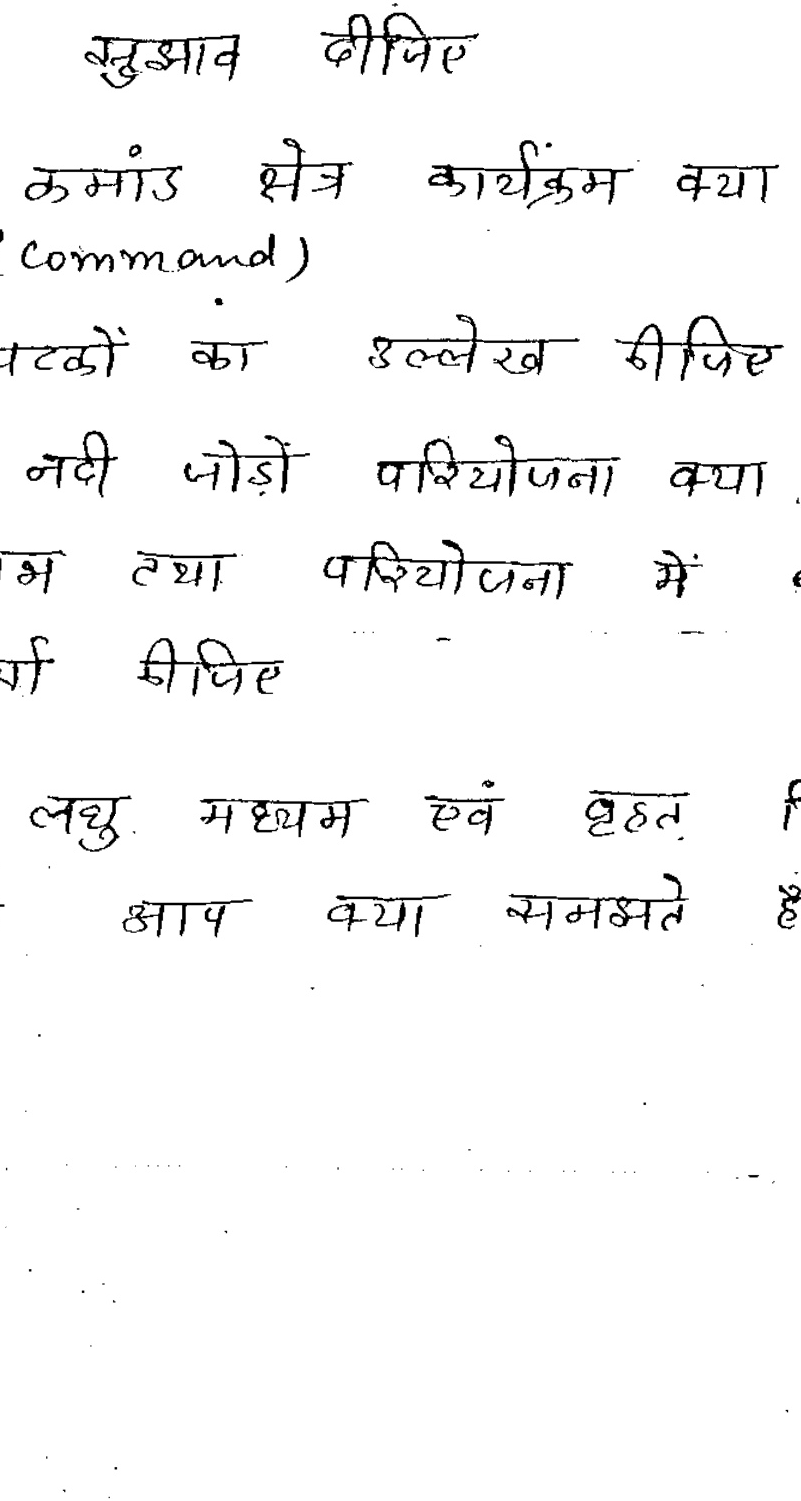 सुझाव दीजिए
कमांड क्षेत्र कार्यक्रम क्या
(Command)
घटकों का उल्लेख कीजिए
नदी जोड़ों परियोजना क्या
तथा परियोजना में
कीजिए
लघु मध्यम एवं वृहत
आप क्या समझते हैं